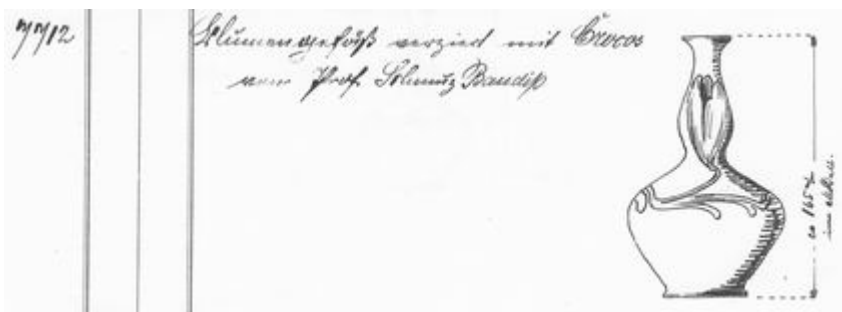 7712
Blumengefäß verziert mit Crocos
von Prof. Schmuz Baudiß
ca 165